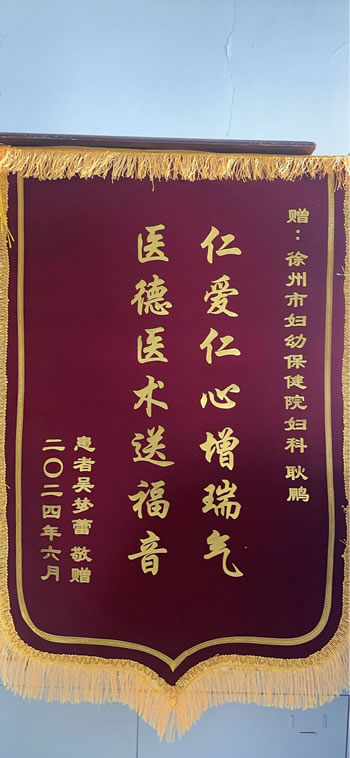 赠：徐州市妇幼保健院妇科 耿鹏
仁爱仁心增瑞气
医德医术送福音
患者吴梦蕾 敬赠
二〇二四年六月